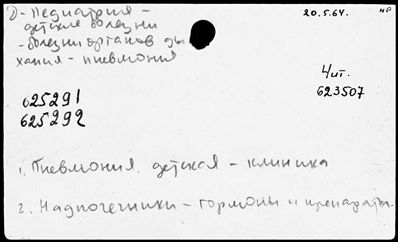 Д - Педиатрия -
детские болезни
- болезни органов ды
хания - пневмония
20.5.64.
нр
Чит.
623507
625291
625292
1. Пневмония детская - клиника
2. Надпочечники - гормоны и препараты.